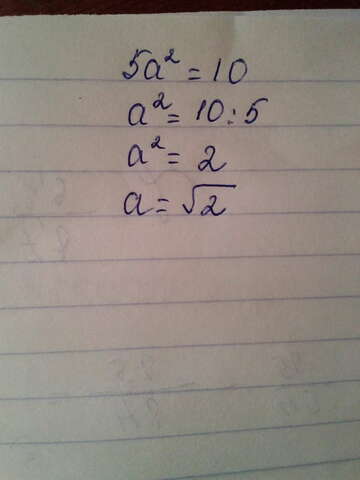 5a² = 10
a² = 10 : 5
a² = 2
a = √2